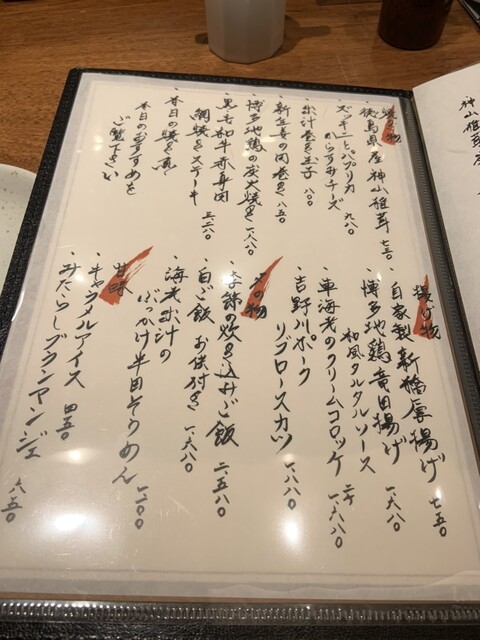 焼き物
・徳島県産神山椎茸 七五〇
・ズッキーニとパプリカ
からすみチーズ 九八〇
・出汁巻き玉子 八〇〇
・新生姜の肉巻き 八五〇
・博多地鶏の炭火焼き 一、八八〇
・黒毛和牛赤身肉
網焼きステーキ 三、二八〇
・本日の焼き魚
本日のおすすめを
ご覧下さい
揚げ物
・自家製新橋厚揚げ 七五〇
・博多地鶏竜田揚げ 一、六八〇
和風タルタルソース
・車海老のクリームコロッケ 二ケ 一、六八〇
・吉野川ポーク
リブロースカツ 一、八八〇
〆の物
・季節の炊き込みご飯 二、五八〇
・白ご飯 お供付き 一、六八〇
・海老出汁の
ぶっかけ半田そうめん 一、二〇〇
甘味
・キャラメルアイス 四五〇
・みたらしブランマンジェ 六五〇
神山椎茸